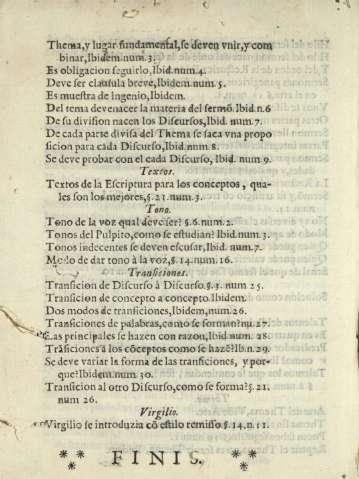 Thema, y lugar fundamental, se deven vnir, y com
binar, Ibidem num. 3.
Es obligacion seguirlo, Ibid. num. 4.
Deve ser clausula breve, Ibidem num. 5.
Es muestra de ingenio, Ibidem.
Del tema deve nacer la materia del sermõ. Ibid. n. 6
De su division nacen los Discursos, Ibid. num. 7.
De cada parte divisa del Thema se saca vna propo
sicion para cada Discurso, Ibid num. 8.
Se deve probar con el cada Discurso, Ibid. num 9.
Textos.
Textos de la Escriptura para los conceptos, qua-
les son los mejores, §. 21. num. 3.
Tono.
Tono de la voz qual deve ser? §. 6. num. 2.
Tonos del Pulpito, como se estudian? Ibid num. 3.
Tonos indecentes se deven escusar, Ibid. num. 7.
Modo de dar tono à la voz, §. 14. num. 16.
Transiciones.
Transicion de Discurso à Discurso. §. 3. num 25.
Transicion de concepto a concepto. Ibidem.
Dos modos de transiciones, Ibidem, num. 26.
Transiciones de palabras, como se forman? nu. 27.
Las principales se hazen con razon, Ibid. num. 28
Trãsiciones a los cõceptos como se hazẽ? Ib. n. 29.
Se deve variar la forma de las transiciones, y por-
que? Ibidem. num. 30.
Transicion al otro Discurso, como se forma? §. 21.
num 26.
Virgilio.
Virgilio se introduzia cõ estilo remisso. §. 14. n. 11.
FINIS.